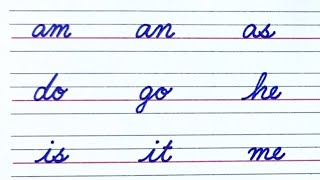 am an as
do go he
is it me